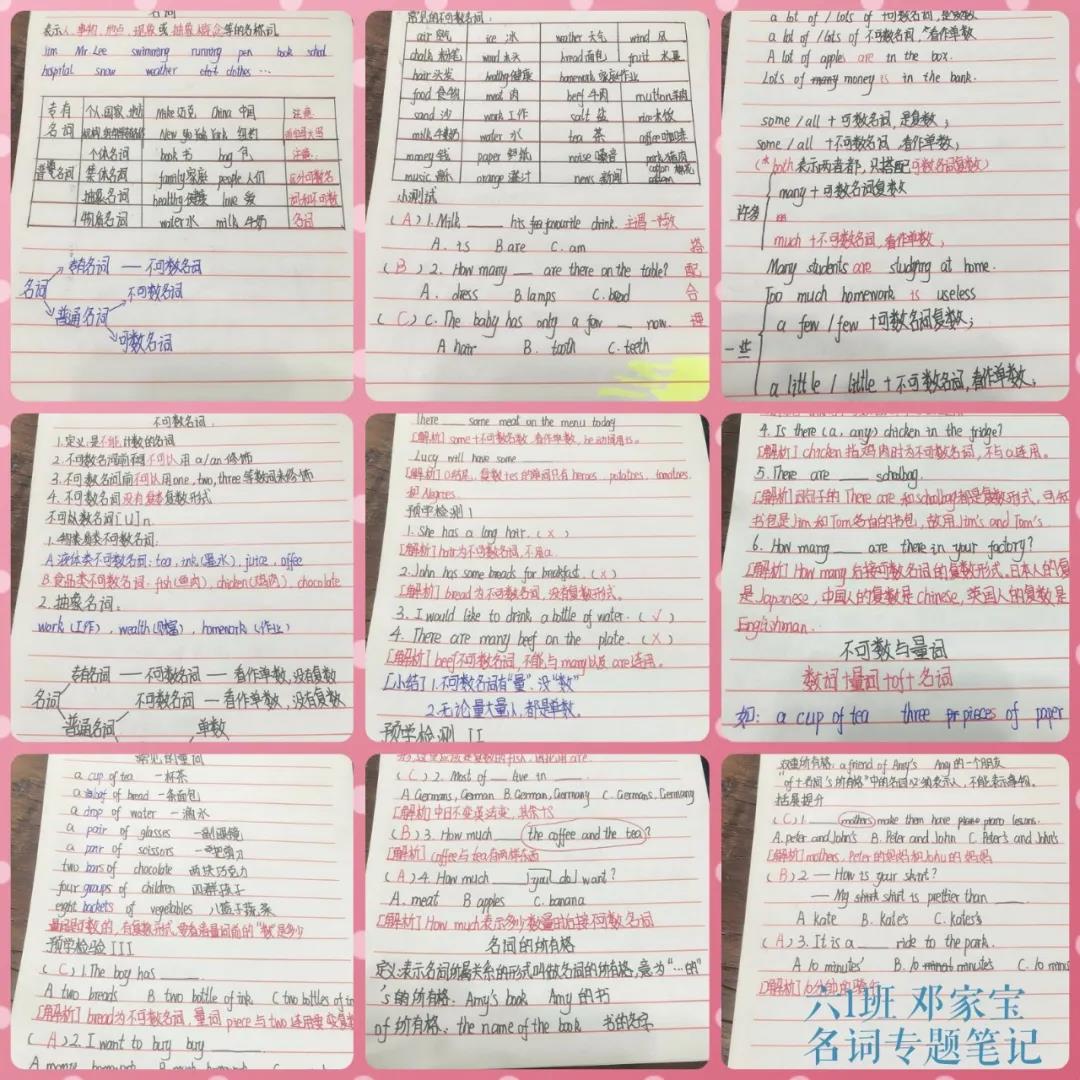 名词
表示人、事物、地点、现象或抽象概念等的名称词
Jim Mr Lee swimming running pen book school
hospital snow weather clothes …
专有 个人、国家、地点 Mike 迈克 China 中国 注意:
名词 New York 纽约
个体名词 book 书 bag 包 注意:
普通名词 集体名词 family 家庭 people 人们 区分可数名
抽象名词 healthy 健康 love 爱 词和不可数
物质名词 water 水 milk 牛奶 名词
专有名词 — 不可数名词
名词 不可数名词
普通名词
可数名词
常见的不可数名词:
air 空气 ice 冰 weather 天气 wind 风
chalk 粉笔 wood 木头 bread 面包 fruit 水果
hair 头发 healthy 健康 homework 家庭作业
food 食物 meat 肉 beef 牛肉 mutton 羊肉
sand 沙 work 工作 salt 盐
milk 牛奶 water 水 tea 茶 coffee 咖啡
money 钱 paper 纸 noise 噪音 pork 猪肉
music 音乐 orange 橙汁 news 新闻 cotton 棉花
小测试
(A) 1. Milk ____ his favourite drink. 主谓一致
A. is B. are C. am
(B) 2. How many __ are there on the table? 搭配合理
A. dress B. lamps C. bread
(C) C. The baby has only a few __ now.
A hair B. tooth C. teeth
a lot of / lots of +可数名词,是复数;
a lot of / lots of 不可数名词,看作单数
A lot of apples are in the box.
Lots of many money is in the bank.
some / all + 可数名词,是复数;
some / all +不可数名词,看作单数;
(* both 表示两者都,只搭配可数名词复数)
many + 可数名词复数
许多 m
much +不可数名词,看作单数;
Many students are studying at home.
Too much homework is useless
a few / few +可数名词复数;
一些
a little / little + 不可数名词,看作单数;
不可数名词:
1.定义:是不能计数的名词
2.不可数名词前不可以用 a/an 修饰
3.不可数名词前不可以用 one, two, three 等数词来修饰
4.不可数名词没有复数形式
不可以数名词[U]n.
1.物质类不可数名词:
A 液体类不可数名词:tea, ink(墨水), juice, coffee
B.食品类不可数名词:fish(鱼肉), chicken(鸡肉), chocolate
2.抽象名词:
work(工作), wealth(财富), homework(作业)
专有名词 — 不可数名词 — 看作单数,没有复数
名词 不可数名词 — 看作单数,没有复数
普通名词 单数
There ____ some meat on the menu today
[解析] some+不可数名数,看作单数,be动词用is.
Lucy will have some ____
[解析] O结尾,复数+es的单词只有 heroes, potatoes, tomatoes,
和 Negroes.
预学检测 I
1. She has a long hair. (×)
[解析] hair为不可数名词,不用a.
2. John has some breads for breakfast. (×)
[解析] bread为不可数名词,没有复数形式.
3. I would like to drink a bottle of water. (√)
4. There are many beef on the plate. (×)
[解析] beef不可数名词,不能与many以及are连用.
[小结] 1.不可数名词有“量”,没“数”
2.无论量大量小,都是单数.
预学检测 II
4. Is there (a, any) chicken in the fridge?
[解析] chicken指鸡肉时为不可数名词,不与a连用.
5. There are ____ schoolbag.
[解析] 因句子的There are 和schoolbag都是复数形式,可知
书包是Jim和Tom各自的书包,故用Jim's and Tom's.
6. How many ____ are there in your factory?
[解析] How many后接可数名词的复数形式.日本人的复
是Japanese,中国人的复数是chinese,英国人的复数是
Englishman.
不可数与量词
数词+量词+of+名词
如: a cup of tea three pieces of paper
常见的量词
a cup of tea 一杯茶
a loaf of bread 一条面包
a drop of water 一滴水
a pair of glasses 一副眼镜
a pair of scissors 一把剪刀
two bars of chocolate 两块巧克力
four groups of children 四群孩子
eight baskets of vegetables 八篮子蔬菜
预学检验 III
(C) 1. The boy has ____.
A two breads B two bottle of ink C two bottles of in
[解析] bread为不可数名词,量词piece与two连用要变复数
(A) 2. I want to buy buy ____.
(C) 2. Most of __ live in ____.
A Germans, German B. German, Germany C. Germans, Germany
[解析] 中日不变英法变,其余+s
(B) 3. How much ____ the coffee and the tea?
[解析] coffee与tea有两样东西
(A) 4. How much ____ you do want?
A. meat B apples C. banana
[解析] How much表示多少数量时后接不可数名词
名词的所有格
定义:表示名词所属关系的形式叫做名词的所有格,意为“…的”
's的所有格: Amy's book Amy的书
of所有格: the name of the book 书的名字
双重所有格: a friend of Amy's Amy的一个朋友
“of+名词's所有格”中的名词必须表示人,不能表示事物.
拓展提升
(C) 1. ____ mothers make them have piano lessons.
A. peter and John's B. Peter and John C. Peter's and John's
[解析] mothers, Peter的妈妈和John的妈妈
(B) 2 — How is your shirt?
— My shirt is prettier than ____.
A kate B. kate's C. kates's
(A) 3. It is a ____ ride to the park.
A 10 minutes' B. 10 minutes C. 10
六1班 邓家宝
名词专题笔记